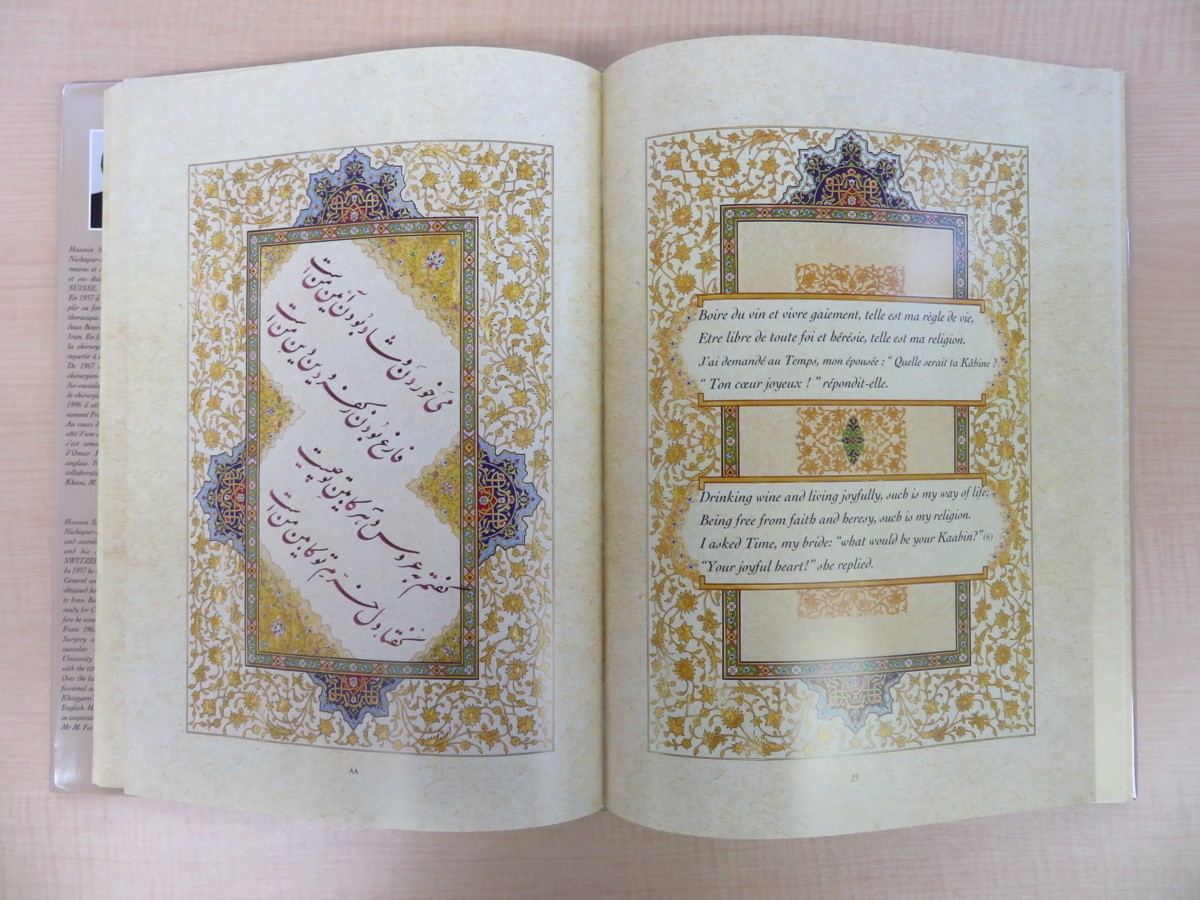 می خوردن و شاد بودن آئین من است
فارغ بودن ز کفر و دین دین من است
گفتم به عروس دهر کابین تو چیست
گفتا دل خرم تو کابین من است
۸۸
Boire du vin et vivre gaiement, telle est ma règle de vie,
Etre libre de toute foi et hérésie, telle est ma religion.
J'ai demandé au Temps, mon épousée : “ Quelle serait ta Kâbine ?
“ Ton cœur joyeux ! ” répondit-elle.
Drinking wine and living joyfully, such is my way of life,
Being free from faith and heresy, such is my religion.
I asked Time, my bride: “what would be your Kaabin?” (6)
“Your joyful heart!” she replied.
25
Hassein
Nishapur-
mains et
et ses
SUISSE.
En 1957 il
thoracique,
deux Boar
Iran. En
la chirurg
repartir à
De 1967
chirurgien
de chirurgi
1996 il
nommé Pr
Au cours d
côté d'une
s'est
d'Omar
anglais. Il
collaboratio
Khani, M.
Hossein
Nishapur-
and secon
and his
SWITZE
In 1957 he
General an
obtained bo
to Iran. Bu
ready for C
fore be wou
From 196
Sargery a
vascular
University
with the tit
Over the la
fissional a
Khayyam'
English. H
in cooperat
Mr M. Far